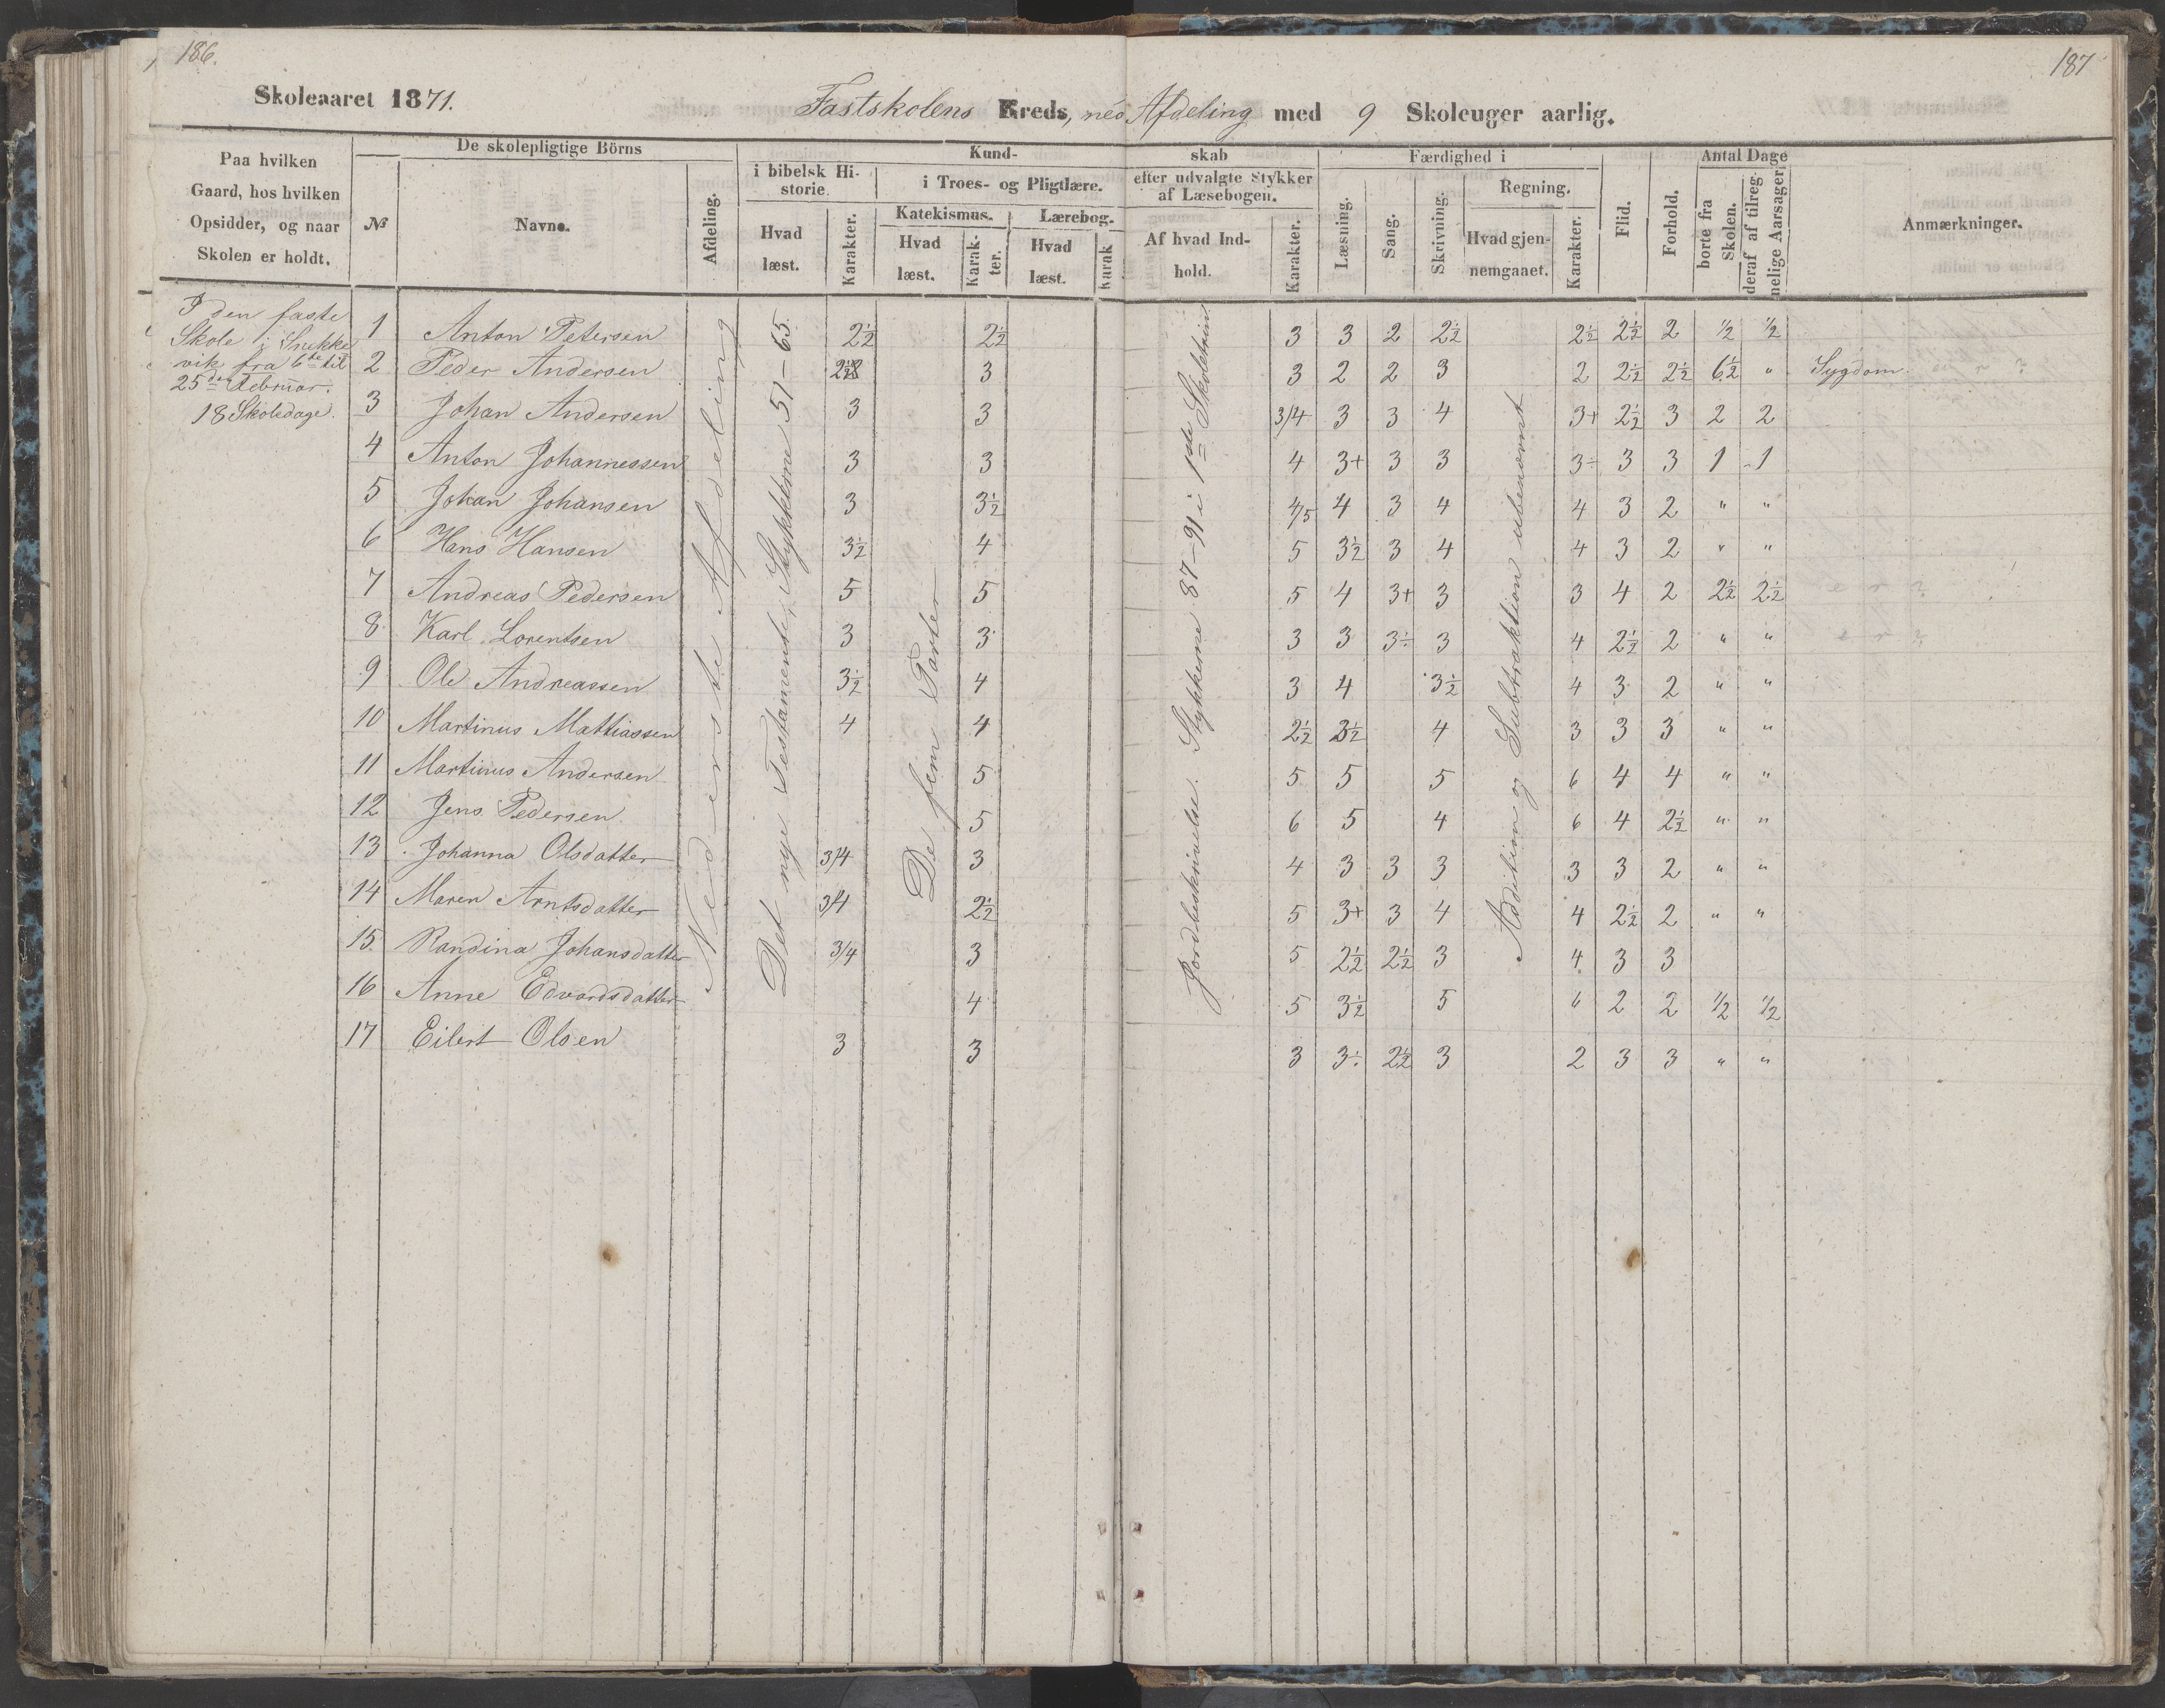 186.
187
Skoleaaret 1871.
Fastskolens Kreds, ned Afdeling med 9 Skoleuger aarlig.
Paa hvilken Gaard, hos hvilken Opsidder, og naar Skolen er holdt.
De skolepligtige Börns
№
Navne.
Afdeling.
Kundskab
i bibelsk Historie.
Hvad læst.
Karakter.
i Troes- og Pligtlære.
Katekismus.
Hvad læst.
Karakter.
Lærebog.
Hvad læst.
Karak
efter udvalgte Stykker af Læsebogen.
Af hvad Indhold.
Karakter.
Færdighed i
Læsning.
Sang.
Skrivning.
Regning.
Hvad gjennemgaaet.
Karakter.
Flid.
Forhold.
Antal Dage
borte fra Skolen.
deraf af tilregnelige Aarsager.
Anmærkninger.
I den faste
Skole i Snekke
vik fra 6te til
25de Februar.
18 Skoledage.
Nederste Afdeling
Det nye Testamente, Stykkerne 51-65.
De fem Parter
Jordbeskrivelse. Stykkerne 87-91 i 1ste Skoletrin.
Addition og Subtraktion ubenævnt
1 Anton Petersen 2½ 2½ 3 3 2 2½ 2½ 2½ 2 ½ ½
2 Peder Andersen 2½ 3 3 2 2 3 2 2½ 2½ 6½ " Sygdom.
3 Johan Andersen 3 3 3/4 3 3 4 3+ 2½ 3 2 2
4 Anton Johannessen 3 3 4 3+ 3 3 3÷ 3 3 1 1
5 Johan Johansen 3 3½ 4/5 4 3 4 4 3 2 " "
6 Hans Hansen 3½ 4 5 3½ 3 4 4 3 2 " "
7 Andreas Pedersen 5 5 5 4 3+ 3 3 4 2 2½ 2½
8 Karl Lorentsen 3 3 3 3 3÷ 3 4 2½ 2 " "
9 Ole Andreassen 3½ 4 3 4 3½ 4 3 2 " "
10 Martinus Mattiassen 4 4 2½ 3½ 4 3 3 3 " "
11 Martinus Andersen 5 5 5 5 6 4 4 " "
12 Jens Pedersen 5 6 5 4 6 4 2½ " "
13 Johanna Olsdatter 3/4 3 4 3 3 3 3 3 2 " "
14 Maren Arntsdatter 3/4 2½ 5 3+ 3 4 4 2½ 2 " "
15. Randina Johansdatter 3/4 3 5 2½ 2½ 3 4 3 3
16 Anne Edvardsdatter 4 5 3½ 5 6 2 2 ½ ½
17 Eilert Olsen 3 3 3 3÷ 2½ 3 2 3 3 " "